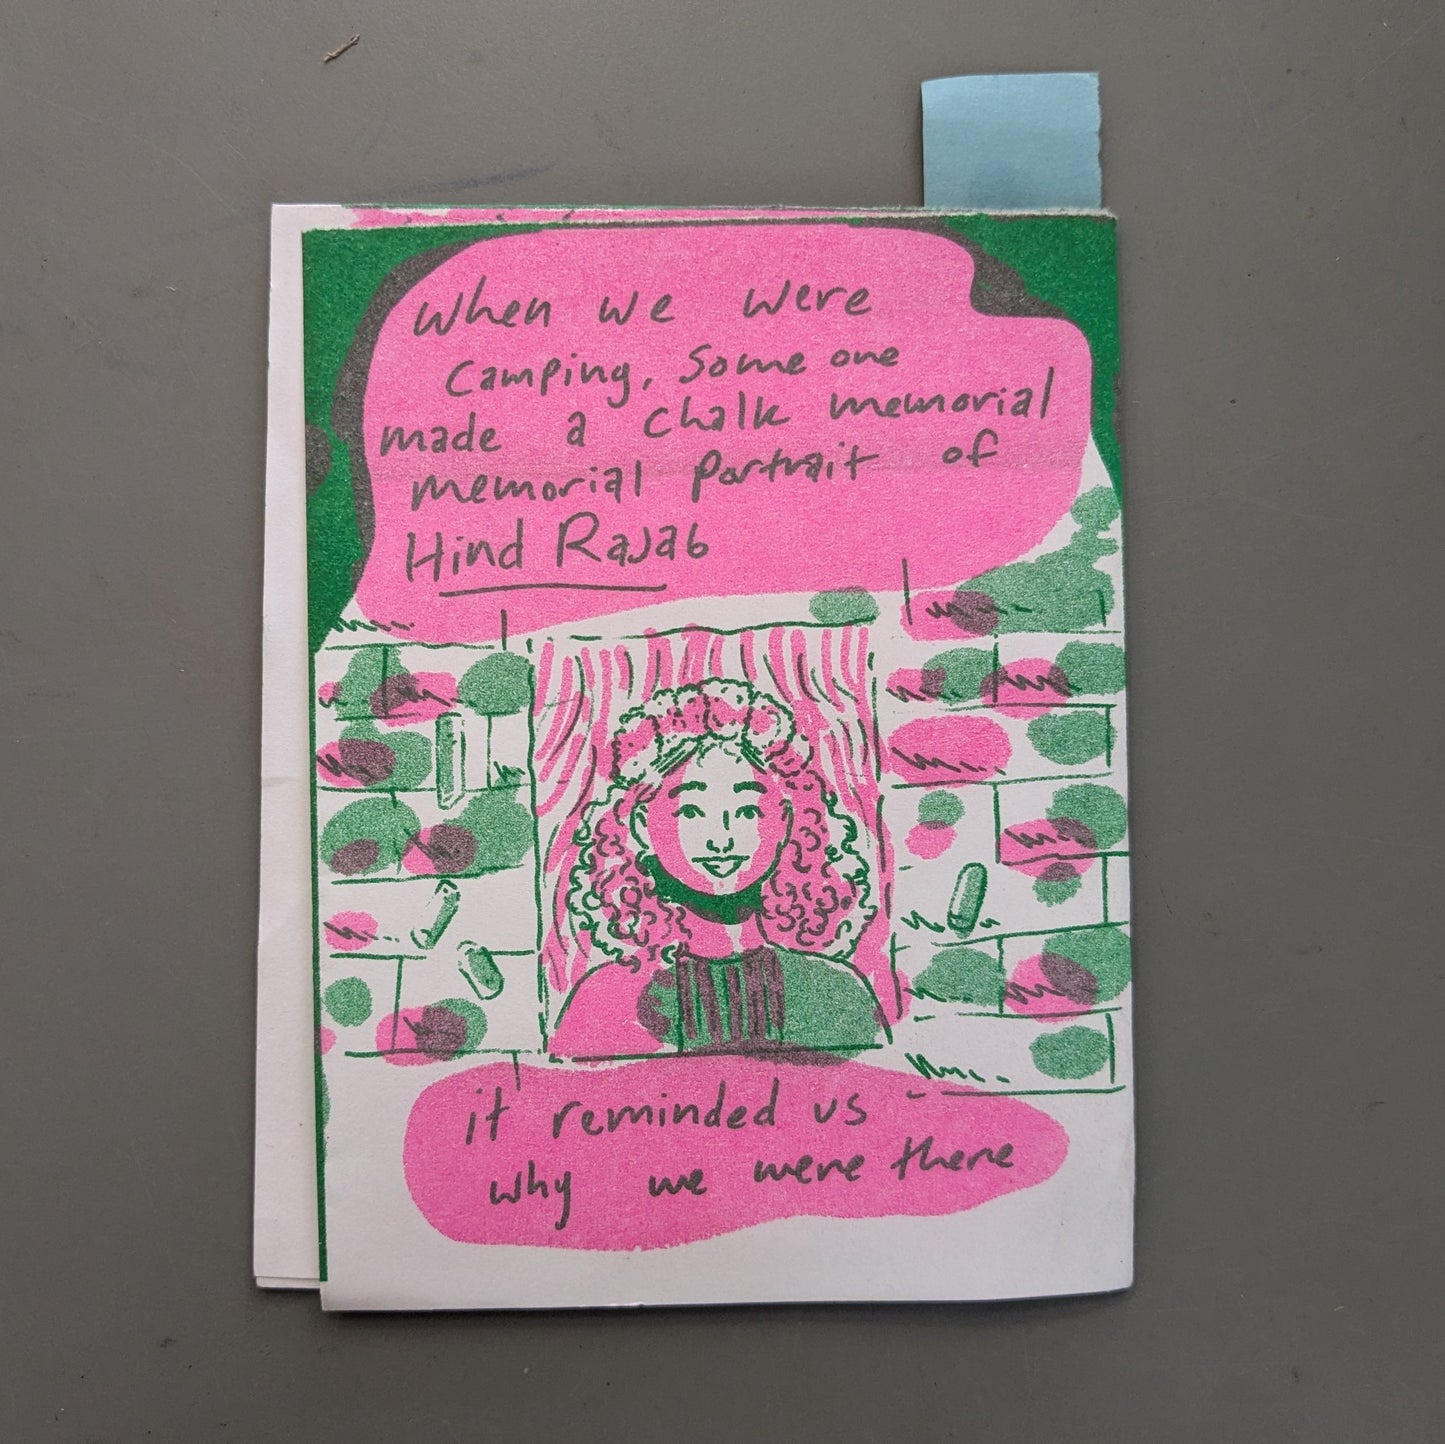 When we were
camping, some one
made a chalk memorial
memorial portrait of
Hind Rajab
it reminded us
why we were there